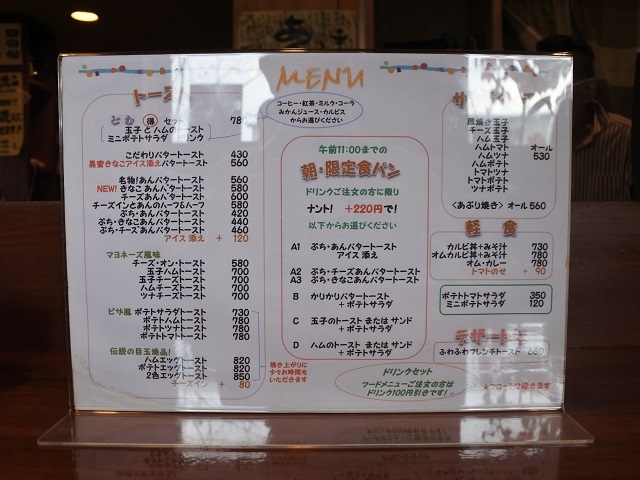 MENU
トース
とむ 得 セット 780
玉子とハムのトースト
ミニポテトサラダ リンク
コーヒー・紅茶・ミルク・コーラ
みかんジュース・カルピス
からお選びください
こだわりバタートースト 430
黒蜜きなこアイス添えバタートースト 560
名物!あんバタートースト 560
NEW! きなこあんバタートースト 580
チーズあんバタートースト 600
チーズインとあんのハーフ&ハーフ 580
ぷち・あんバタートースト 420
ぷち・きなこあんバタートースト 440
ぷち・チーズあんバタートースト 460
アイス添え + 120
マヨネーズ風味
チーズ・オン・トースト 580
玉子ハムトースト 700
玉子チーズトースト 700
ハムチーズトースト 700
ツナチーズトースト 700
ピザ風 ポテトサラダトースト 730
ポテトハムトースト 780
ポテトツナトースト 780
ポテトトマトトースト 780
伝説の目玉焼品!
ハムエッグトースト 820
ポテトエッグトースト 820
2色エッグトースト 850
チーズイン + 80
焼き上がりに
少々お時間を
いただきます
午前11:00までの
朝・限定食パン
ドリンクご注文の方に限り
ナント! +220円で!
以下からお選びください
A1 ぷち・あんバタートースト
アイス添え
A2 ぷち・チーズあんバタートースト
A3 ぷち・きなこあんバタートースト
B かりかりバタートースト
+ポテトサラダ
C 玉子のトースト または サンド
+ポテトサラダ
D ハムのトースト または サンド
+ポテトサラダ
ドリンクセット
フードメニューご注文の方は
ドリンク100円引きです!
サ
風焼き玉子
チーズ玉子
ハム玉子
ハムトマト オール
ハムツナ 530
ハムポテト
トマトツナ
トマトポテト
ツナポテト
<あぶり焼き> オール 560
軽食
カルビ丼+みそ汁 730
オムカルビ丼+みそ汁 780
オム・カレー 780
トマトのせ + 90
ポテトトマトサラダ 350
ミニポテトサラダ 120
デザート
ふわふわフレンチトースト